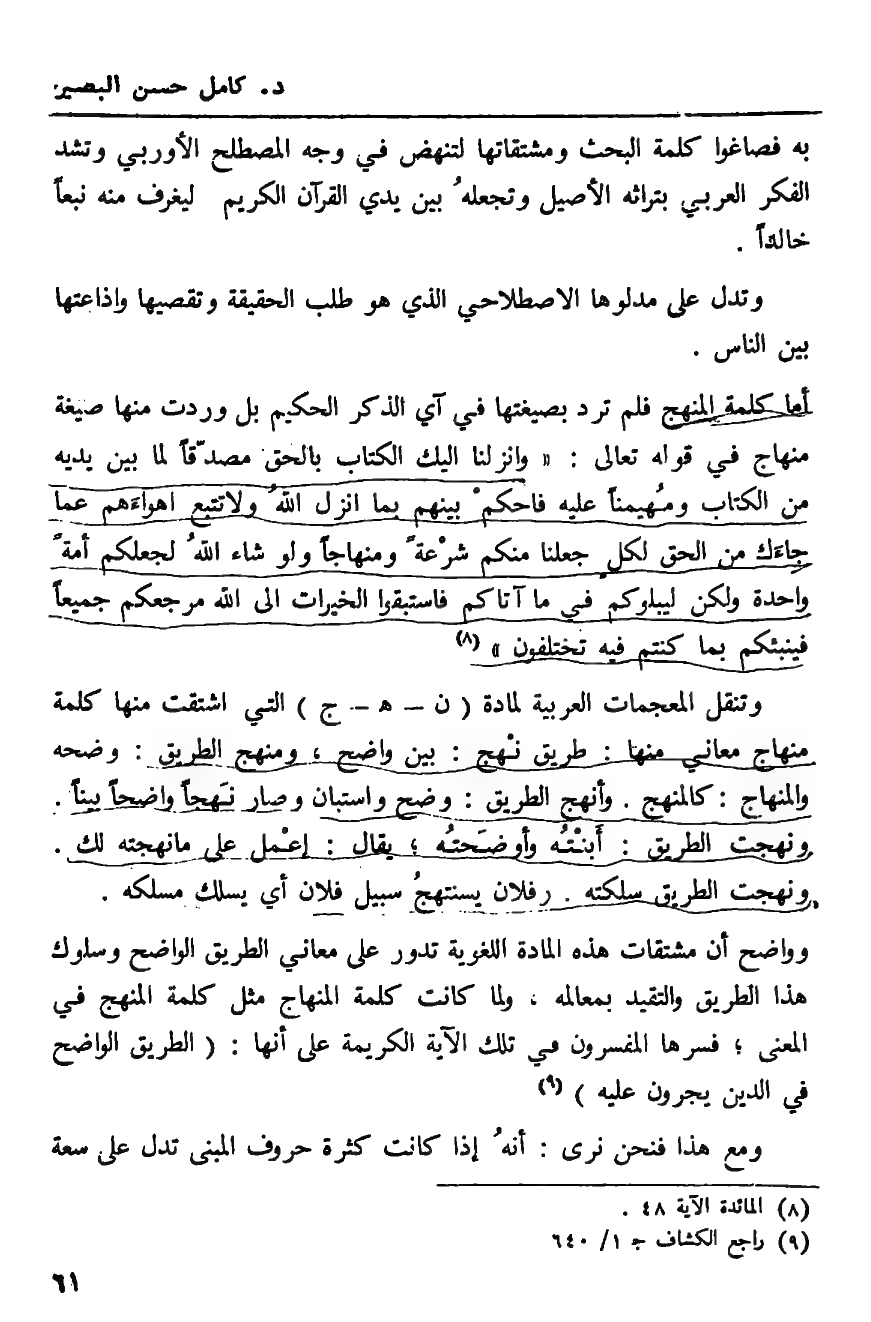 د. كامل حسن البصير
به فصاغوا كلمة البحث ومشتقاتها لتنهض في وجه المصطلح الأوربي وتشد
الفكر العربي بتراثه الأصيل وتجعلهُ بين يدي القرآن الكريم ليغرف منه نبعاً
خالداً .
وتدل على مدلوها الاصطلاحي الذي هو طلب الحقيقة وتقصيها واذاعتها
بين الناس .
أما كلمة المنهج فلم ترد بصيغتها في آي الذكر الحكيم بل وردت منها صيغة
منهاج في قوله تعالى : « وانزلنا اليك الكتاب بالحق مصدّقاً لما بين يديه
من الكتاب ومُهيمناً عليه فاحكمْ بينهم بما انزل اللهُ ولاتتبع اهواءَهم عما
جاءَك من الحق لكلٍ جعلنا منكم شرْعةً ومنهاجاً ولو شاء اللهُ لجعلكم أمةً
واحدة ولكن ليبلوكم في ما آتاكم فاستبقوا الخيرات الى الله مرجعكم جميعاً
فينبئكم بما كنتم فيه تختلفون » (٨)
وتنقل المعجمات العربية لمادة ( ن – هـ – ج ) التي اشتقت منها كلمة
منهاج معاني منها : طريق نْهج : بين واضح ، ومنهج الطريق : وضحه
والمنهاج : كالمنهج . وأنهج الطريق : وضح واستبان وصار نَهجاً واضحاً بيناً .
ونهجت الطريق : أَبنْتُه وأوضَحتُه ؛ يقال : إعْمل على مانهجته لك .
ونهجت الطريق سلكته . وفلان يستنهجُ سبيل فلان أي يسلك مسلكه .
وواضح أن مشتقات هذه المادة اللغوية تدور على معاني الطريق الواضح وسلوك
هذا الطريق والتقيد بمعالمه ، ولما كانت كلمة المنهاج مثل كلمة المنهج في
المعنى ؛ فسرها المفسرون في تلك الآية الكريمة على أنها : ( الطريق الواضح
في الدين يجرون عليه ) (٩)
ومع هذا فنحن نرى : أنهُ إذا كانت كثرة حروف المبنى تدل على سعة
(٨) المائدة الآية ٤٨ .
(٩) راجع الكشاف جـ ١/ ٦٤٠
٦١